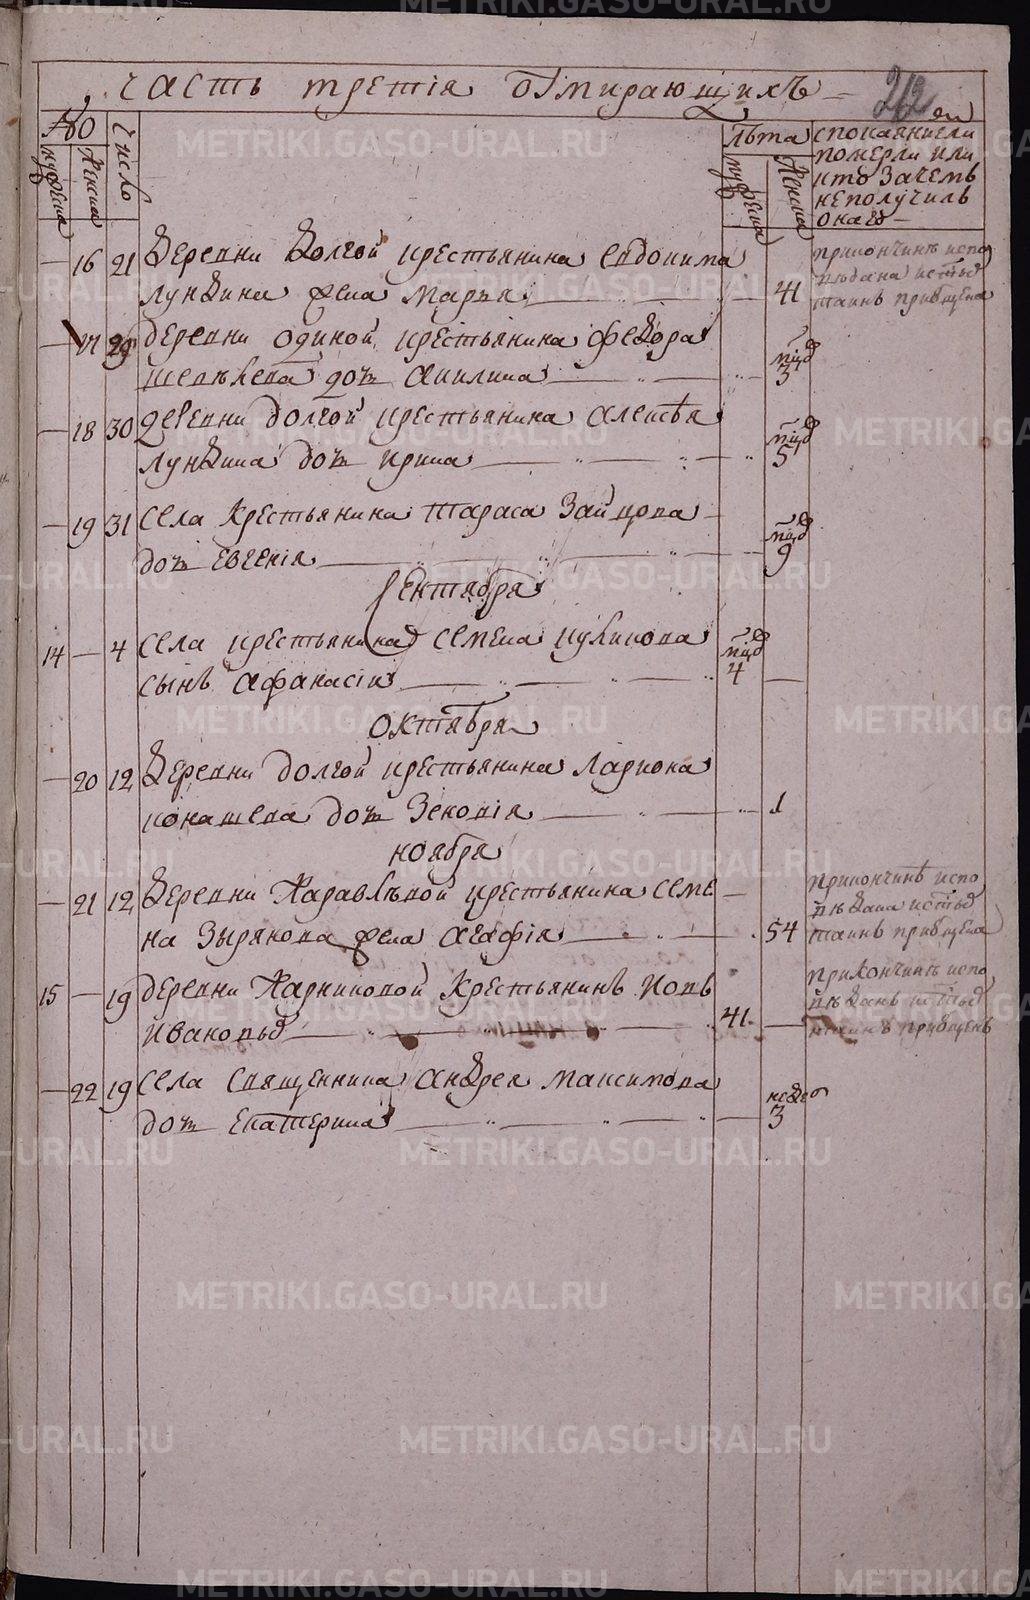 часть третїя ѡ умирающихъ
212
No
число
лѣта
спокаяниели
мужеска
женска
мужеска
женска
померли или
кто зачемъ
неполучилъ
онаго
16 21 деревни Долгой крестьянина Евдокима
лундина жена Марья 41
прикончинѣ испо
вѣдана исты
таинъ приобщена
17 29 деревни одиной крестьянина Федора
дочь Акилина мцъ 3
18 30 деревни долгой крестьянина алексѣя
лундина дочь ирина мцъ 5
19 31 села Крестьянина тараса Зайцова
дочь Евгенїя мцъ 9
Сентября
14 4 села крестьянина семена куликова
сынъ афанасїи мцъ 4
Октября
20 12 Деревни долгой крестьянина Лариона
дочь Зеновїя 1
ноября
21 12 Деревни крестьянина семе
на Зырянова жена Агафїя 54
приконъчинѣ испо
вѣдана исты
таинъ приобщена
15 19 деревни Крестьянинъ Иовъ
Ивановъ 41
Приконъчинѣ испо
вѣданъ исты
таинъ приобщенъ
22 19 села Священника Андрея максимова
дочь Екатерина недел 3
METRIKI.GASO-URAL.RU